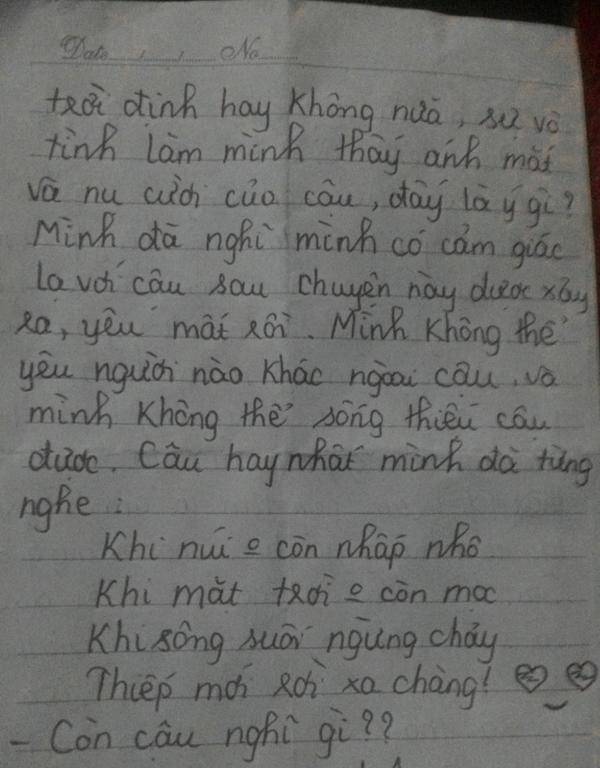 Date No
trời định hay không nữa, sự vô
tình làm mình thấy ánh mắt
và nụ cười của cậu, đấy là ý gì?
Mình đã nghĩ mình có cảm giác
lạ với cậu sau chuyện này được xảy
ra, yêu mất rồi. Mình không thể
yêu người nào khác ngoài cậu, và
mình không thể sống thiếu cậu
được. Câu hay nhất mình đã từng
nghe :
Khi núi o còn nhấp nhô
Khi mặt trời o còn mọc
Khi sông suối ngừng chảy
Thiếp mới rời xa chàng!
- Còn cậu nghĩ gì??